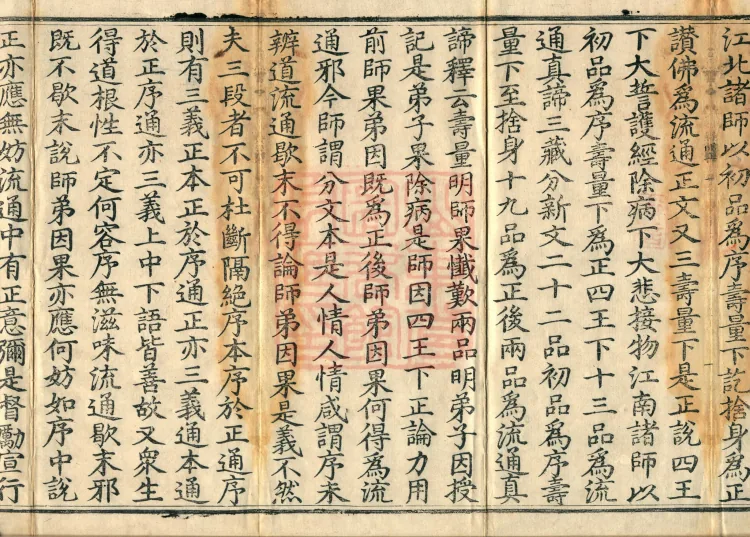 江北諸師以初品為序壽量下訖捨身為正
讚佛為流通正文又三壽量下是正說四王
下大誓護經除病下大悲接物江南諸師以
初品為序壽量下為正四王下十三品為流
通真諦三藏分新文二十二品初品為序壽
量下至捨身十九品為正後兩品為流通真
諦釋云壽量明師果懺歎兩品明弟子因授
記是弟子果除病是師因四王下正論力用
前師果弟因既為正後師弟因果何得為流
通邪今師謂分文本是人情人情咸謂序未
辨道流通歇末不得論師弟因果是義不然
夫三段者不可杜斷隔絕序本序於正通序
則有三義正本正於序通正亦三義通本通
於正序通亦三義上中下語皆善故又眾生
得道根性不定何容序無滋味流通歇末邪
既不歇末說師弟因果亦應何妨如序中說
正亦應無妨流通中有正意彌是督勵宣行